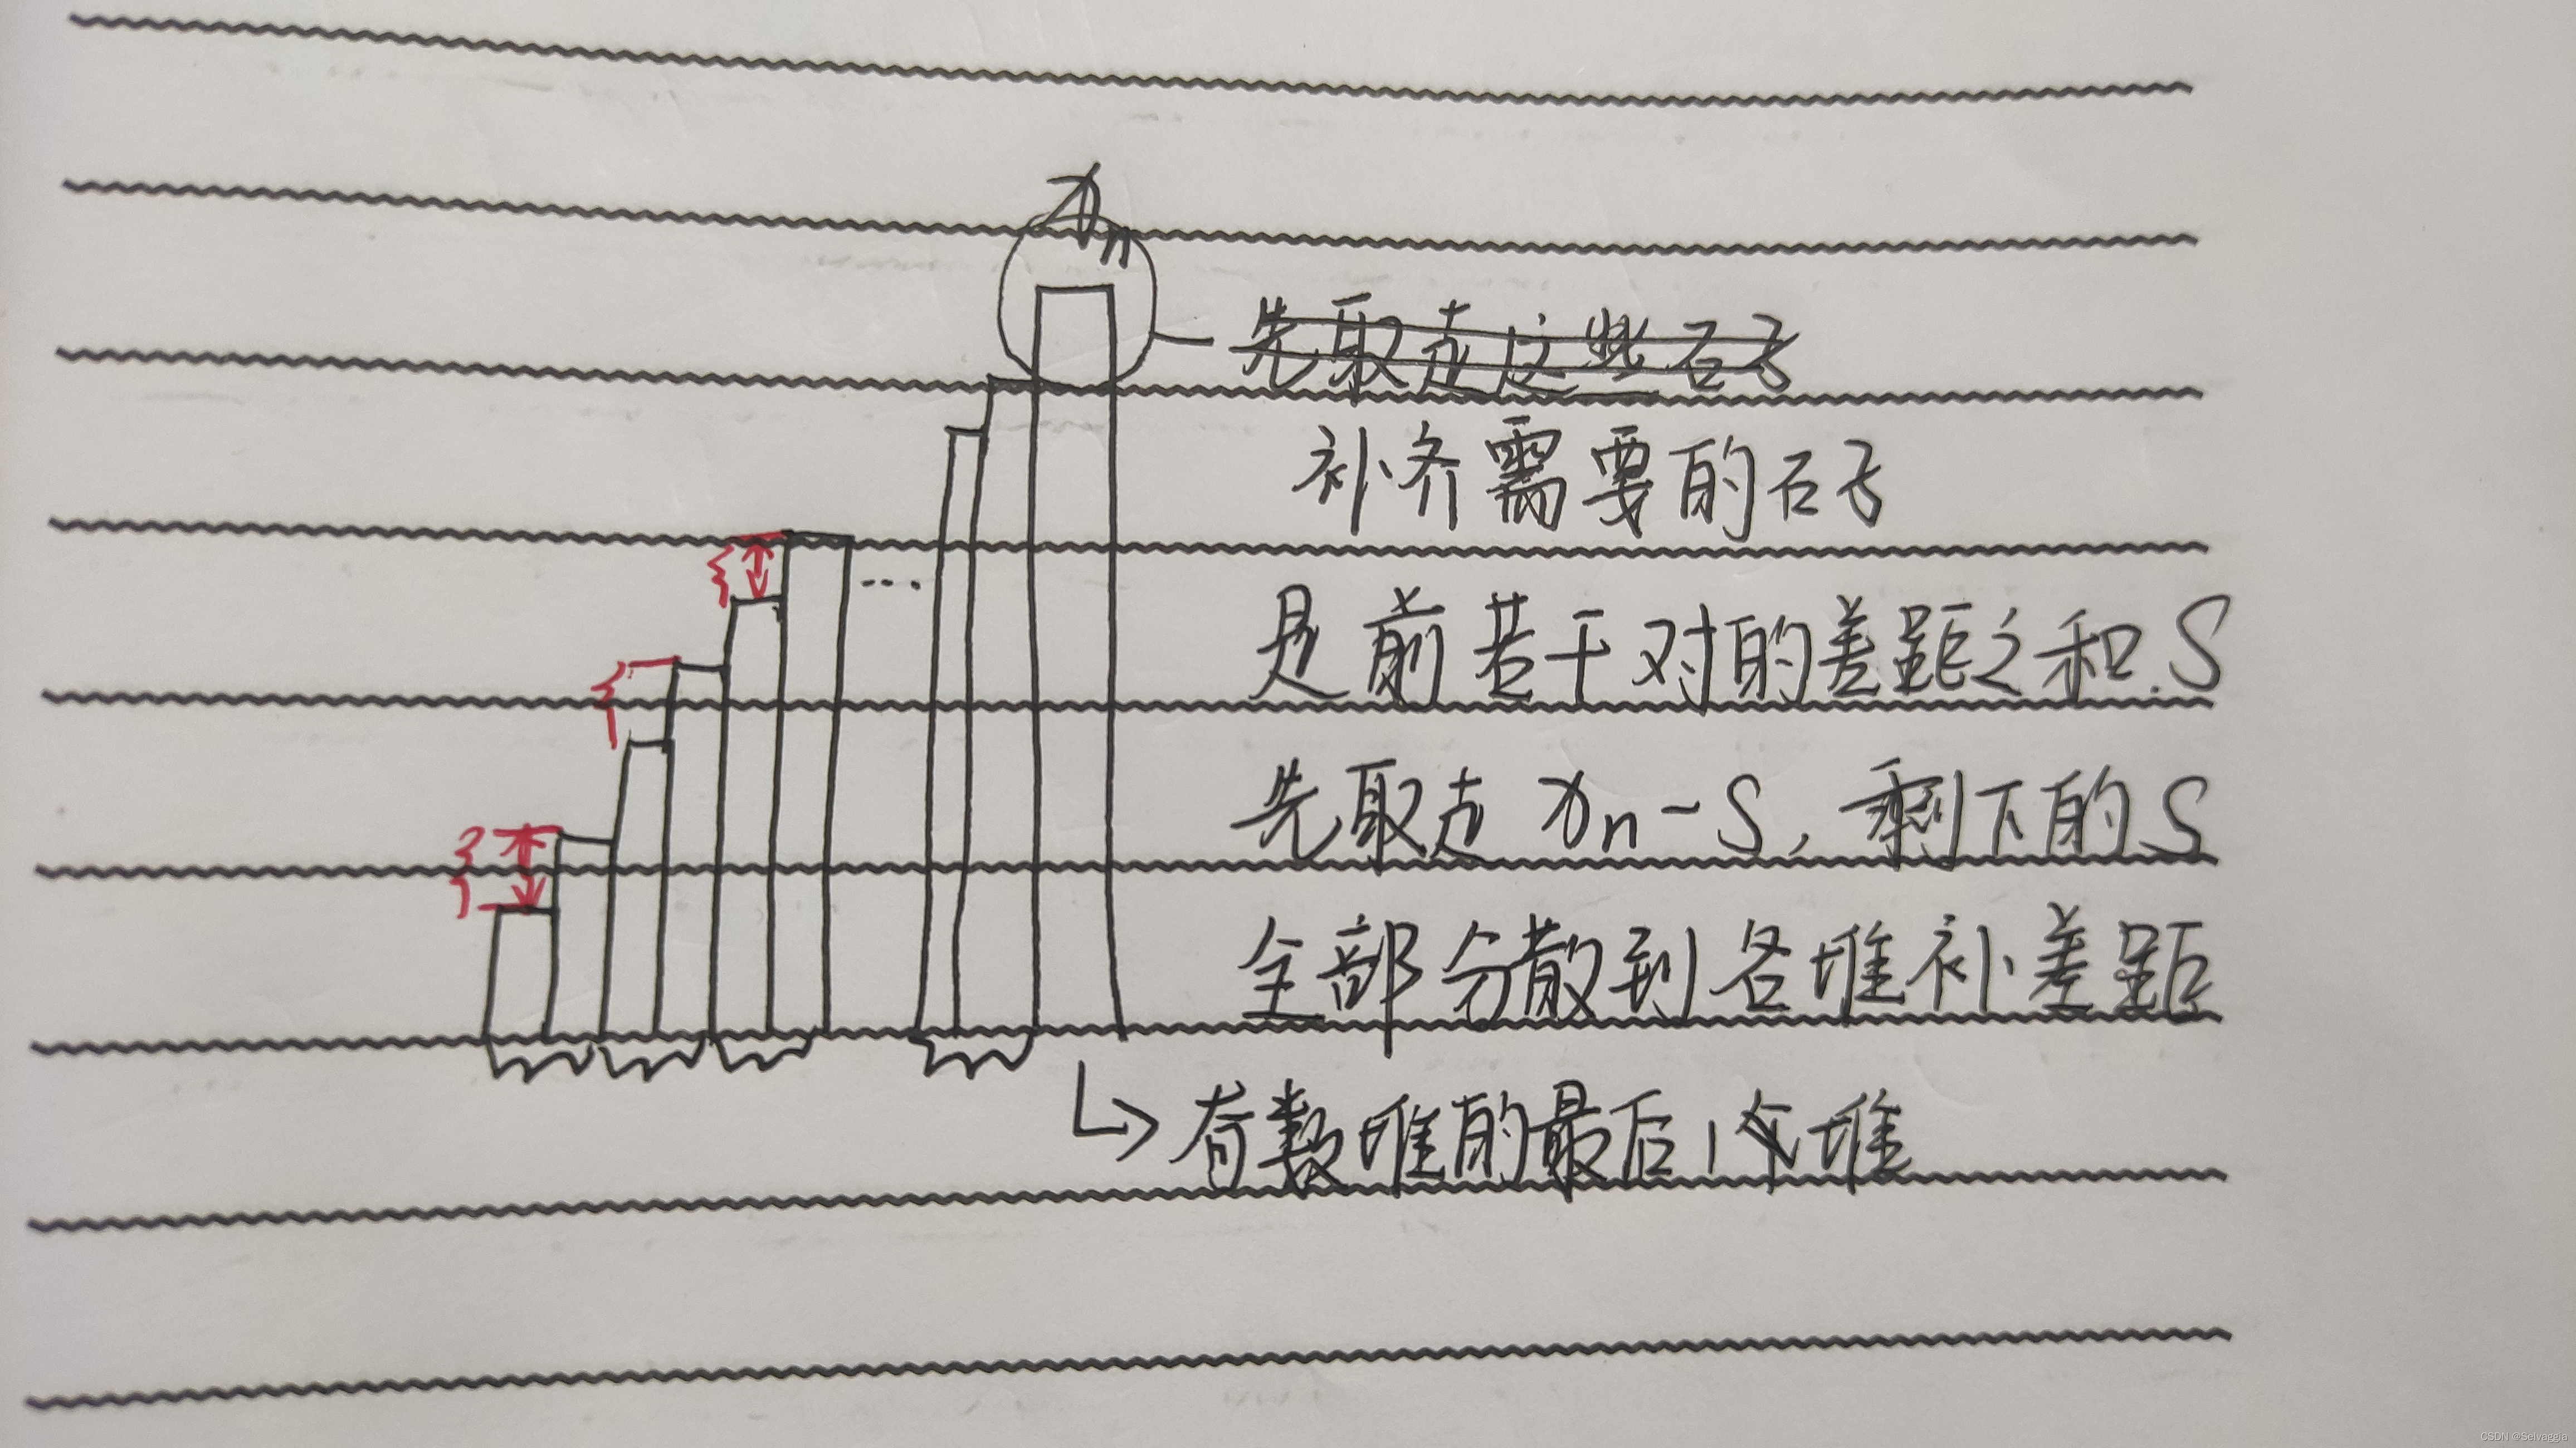 xn
先取走这些石子
补齐需要的石子
是前若干对的差距之和S
先取走 xn-S, 剩下的S
全部分散到各堆补差距
奇数堆的最后1个堆
CSDN @Selvaggia